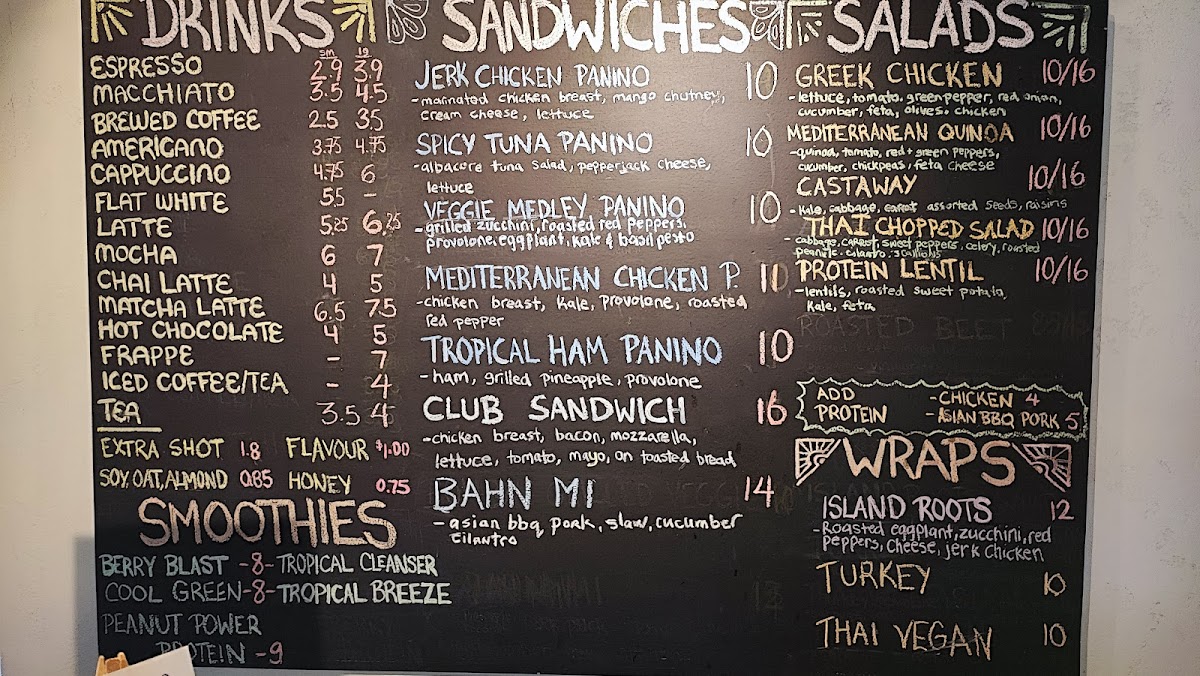 DRINKS
sm lg
ESPRESSO 2.9 3.9
MACCHIATO 3.5 4.5
BREWED COFFEE 2.5 3.5
AMERICANO 3.75 4.75
CAPPUCCINO 4.75 6
FLAT WHITE 5.5 -
LATTE 5.25 6.25
MOCHA 6 7
CHAI LATTE 4 5
MATCHA LATTE 6.5 7.5
HOT CHOCOLATE 4 5
FRAPPE - 7
ICED COFFEE/TEA - 4
TEA 3.5 4
EXTRA SHOT 1.8 FLAVOUR $1.00
SOY, OAT, ALMOND 0.85 HONEY 0.75
SMOOTHIES
BERRY BLAST -8- TROPICAL CLEANSER
COOL GREEN -8- TROPICAL BREEZE
PEANUT POWER
PROTEIN -9
SANDWICHES
JERK CHICKEN PANINO 10
-marinated chicken breast, mango chutney,
cream cheese, lettuce
SPICY TUNA PANINO 10
-albacore tuna salad, pepperjack cheese,
lettuce
VEGGIE MEDLEY PANINO 10
-grilled zucchini, roasted red peppers,
provolone, eggplant, kale & basil pesto
MEDITERRANEAN CHICKEN P. 11
-chicken breast, kale, provolone, roasted
red pepper
TROPICAL HAM PANINO 10
-ham, grilled pineapple, provolone
CLUB SANDWICH 16
-chicken breast, bacon, mozzarella,
lettuce, tomato, mayo, on toasted bread
BAHN MI 14
-asian bbq pork, slaw, cucumber
cilantro
SALADS
GREEK CHICKEN 10/16
-lettuce, tomato, green pepper, red onion,
cucumber, feta, olives, chicken
MEDITERRANEAN QUINOA 10/16
-quinoa, tomato, red + green peppers,
cucumber, chickpeas, feta cheese
CASTAWAY 10/16
-kale, cabbage, carrot assorted seeds, raisins
THAI CHOPPED SALAD 10/16
-cabbage, carrot, sweet peppers, celery, roasted
peanuts, cilantro, scallions
PROTEIN LENTIL 10/16
-lentils, roasted sweet potato,
kale, feta
ROASTED BEET
ADD -CHICKEN 4
PROTEIN -ASIAN BBQ PORK 5
WRAPS
ISLAND ROOTS 12
-Roasted eggplant, zucchini, red
peppers, cheese, jerk chicken
TURKEY 10
THAI VEGAN 10